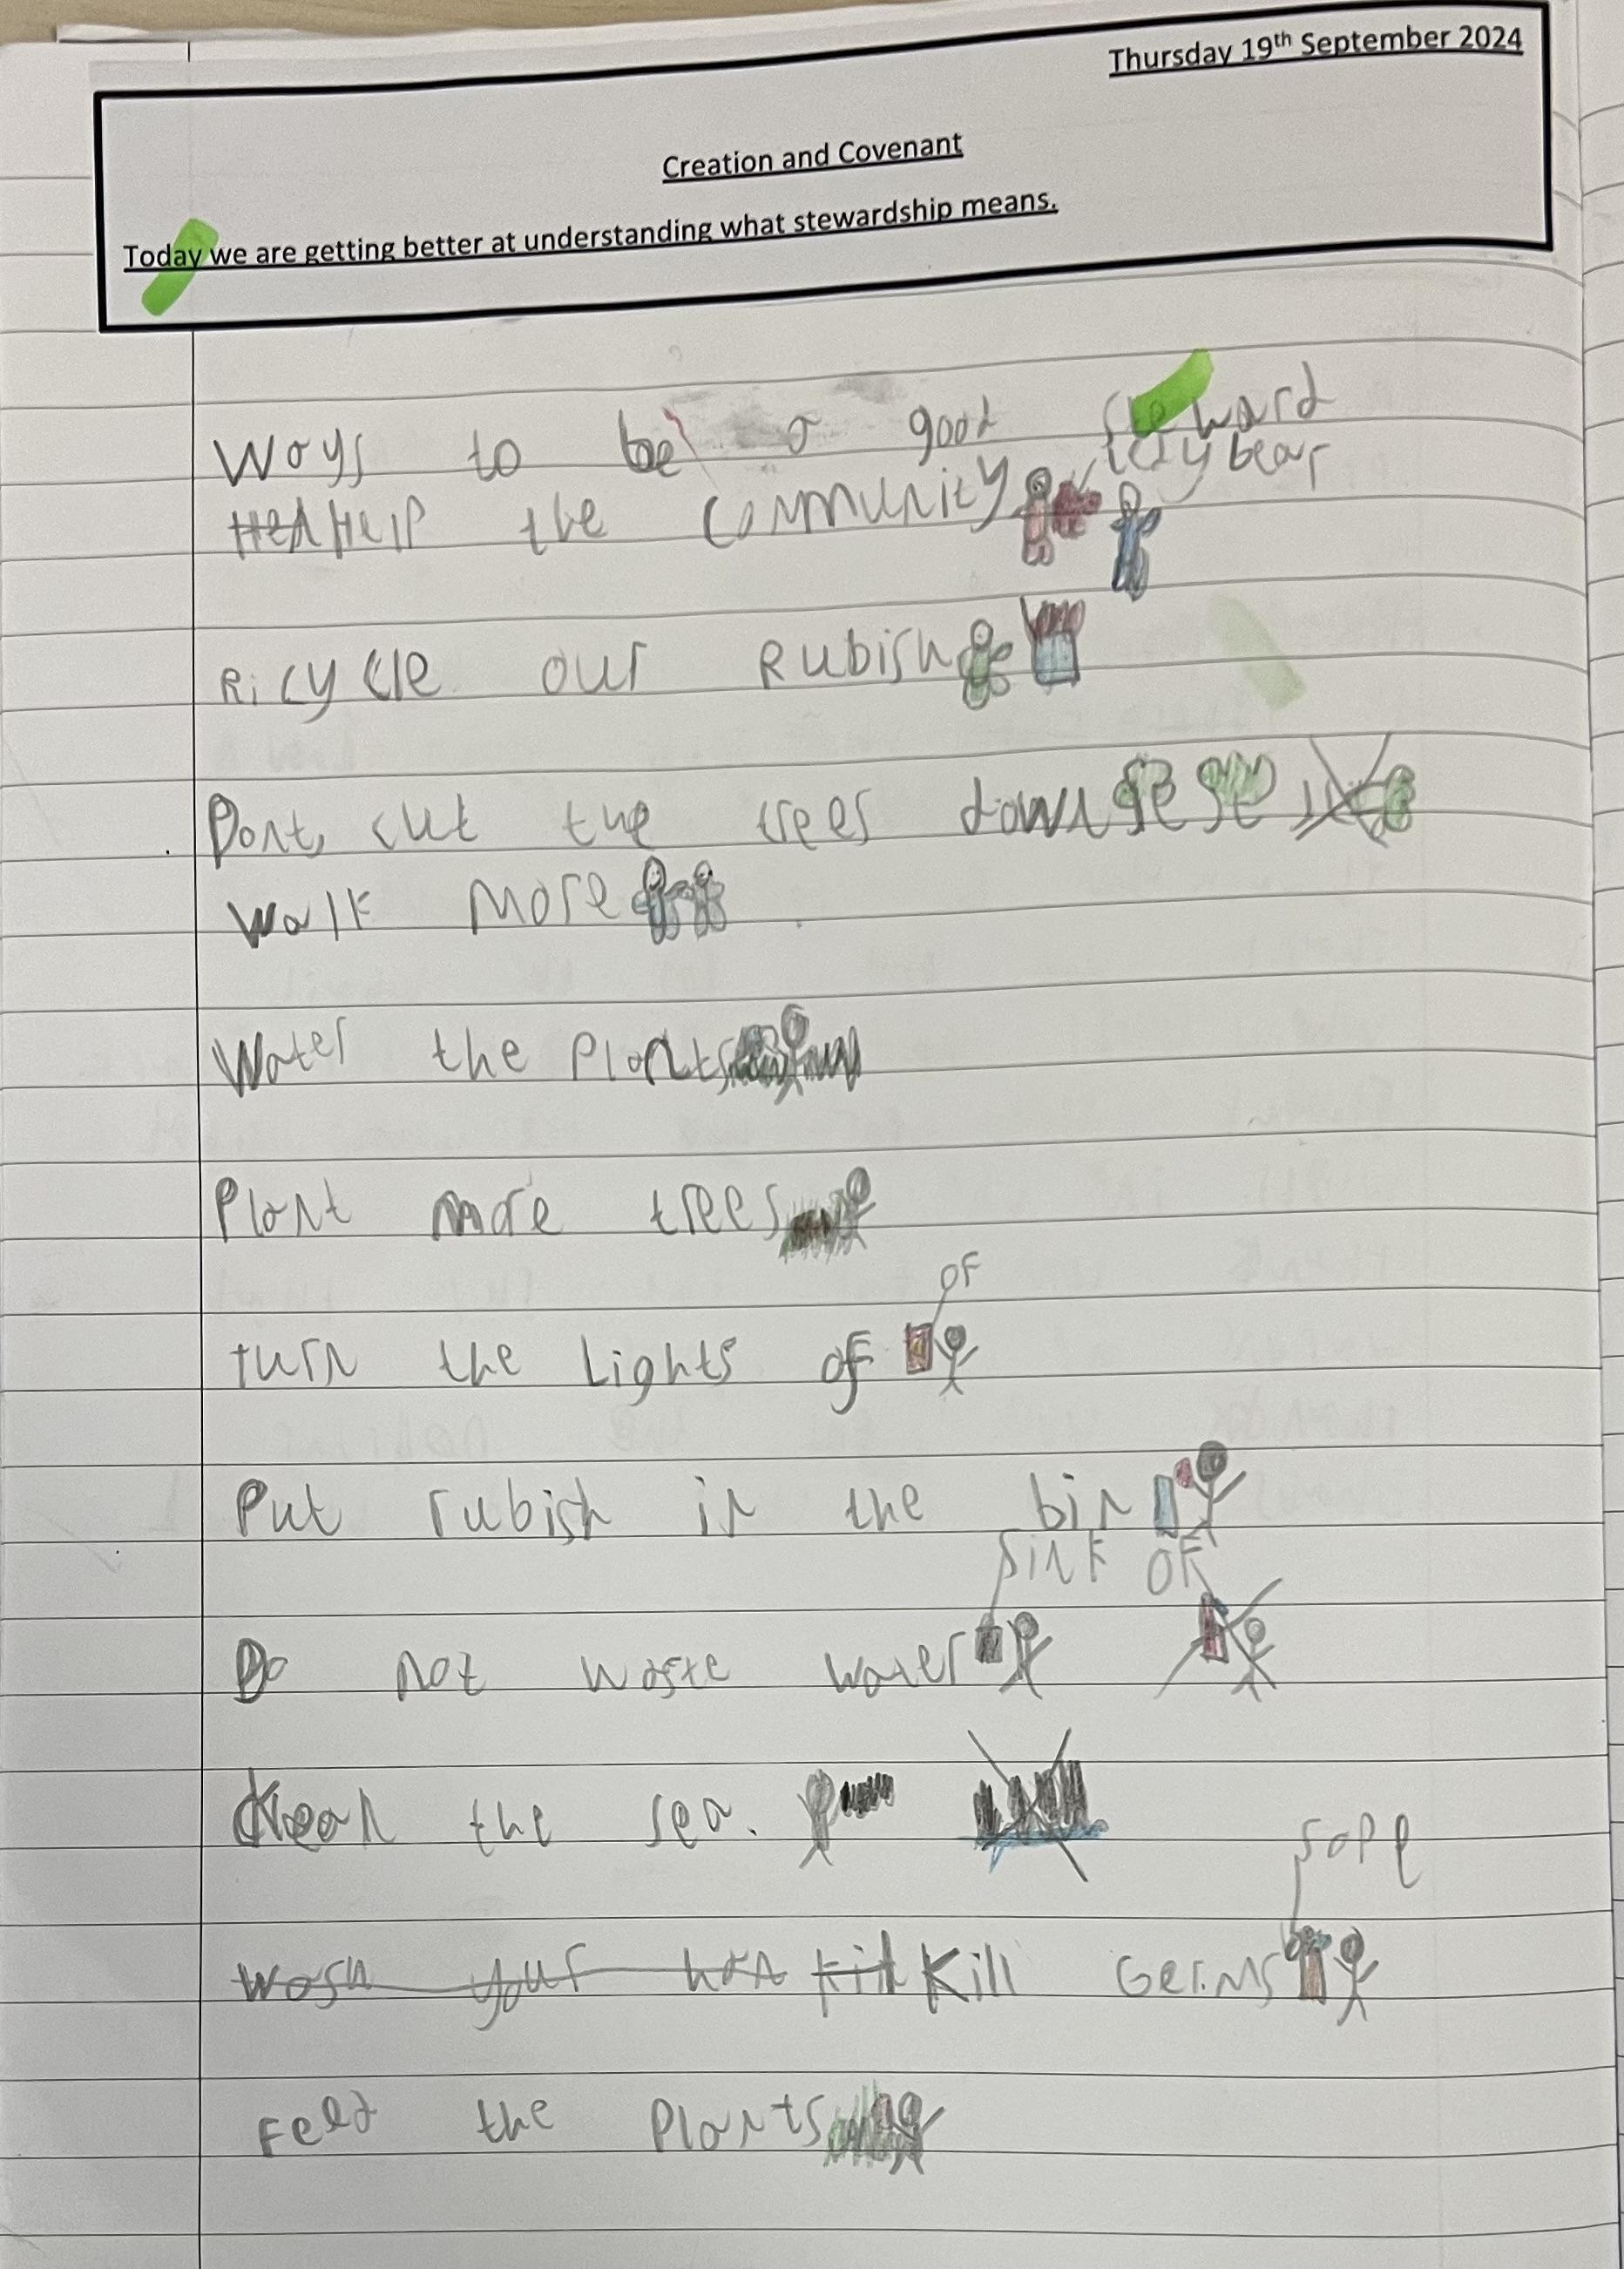 Thursday 19th September 2024
Creation and Covenant
Today we are getting better at understanding what stewardship means.
Ways to be a good steward
Hed Help the community teddy bear
Ricycle our Rubish
Dont, cut the trees down
Walk more
Water the Plants
Plant more trees
of
turn the Lights of
Put rubish in the bin
sink of
Do not waste water
clean the sea.
sope
wash your han kil Kill Germs
Feed the Plants